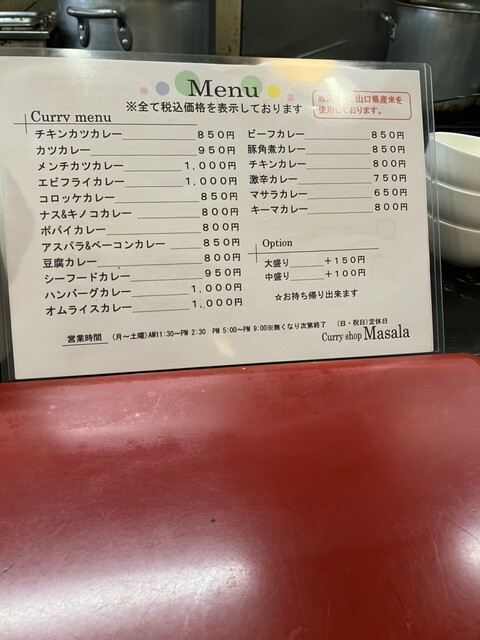 Menu
※全て税込価格を表示しております
山口県産米を
使用しております。
Curry menu
チキンカツカレー 850円
カツカレー 950円
メンチカツカレー 1,000円
エビフライカレー 1,000円
コロッケカレー 850円
ナス&キノコカレー 800円
ポパイカレー 800円
アスパラ&ベーコンカレー 850円
豆腐カレー 800円
シーフードカレー 950円
ハンバーグカレー 1,000円
オムライスカレー 1,000円
ビーフカレー 850円
豚角煮カレー 850円
チキンカレー 800円
激辛カレー 750円
マサラカレー 650円
キーマカレー 800円
Option
大盛り +150円
中盛り +100円
☆お持ち帰り出来ます
営業時間 (月~土曜)AM11:30~PM 2:30 PM 5:00~PM 9:00※無くなり次第終了 (日・祝日)定休日
Curry shop Masala